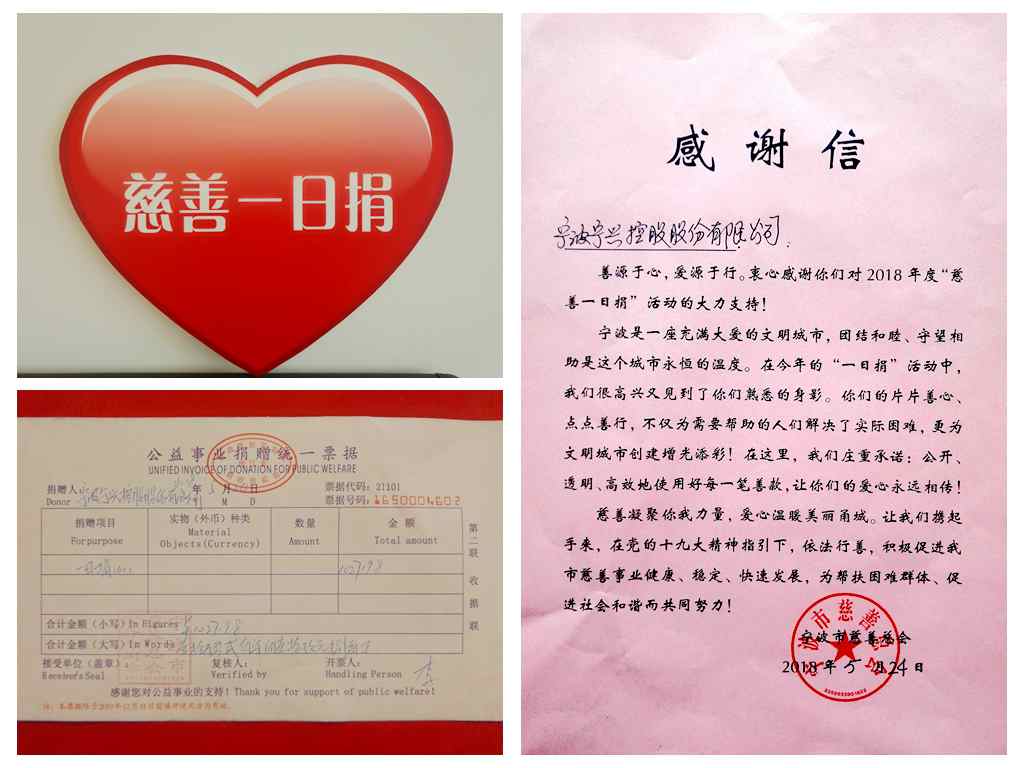 慈善一日捐
公益事业捐赠统一票据
UNIFIED INVOICE OF DONATION FOR PUBLIC WELFARE
捐赠人
Donor
年 5 月 日
Y M D
票据代码：27101
票据号码：1650004602
捐赠项目
For purpose
实物（外币）种类
Material
Objects(Currency)
数量
Amount
金 额
Total amount
第二联 收据联
一日捐
合计金额（小写）In Figures
合计金额（大写）In Words
接受单位（盖章）：
Receiver's Seal
复核人：
Verified by
开票人：
Handling Person
感谢您对公益事业的支持！Thank you for support of public welfare!
感谢信
宁波宁兴控股股份有限公司
善源于心，爱源于行。衷心感谢你们对 2018 年度“慈
善一日捐”活动的大力支持！
宁波是一座充满大爱的文明城市，团结和睦、守望相
助是这个城市永恒的温度。在今年的“一日捐”活动中，
我们很高兴又见到了你们熟悉的身影。你们的片片善心、
点点善行，不仅为需要帮助的人们解决了实际困难，更为
文明城市创建增光添彩！在这里，我们庄重承诺：公开、
透明、高效地使用好每一笔善款，让你们的爱心永远相传！
慈善凝聚你我力量，爱心温暖美丽甬城。让我们携起
手来，在党的十九大精神指引下，依法行善，积极促进我
市慈善事业健康、稳定、快速发展，为帮扶困难群体、促
进社会和谐而共同努力！
宁波市慈善总会
2018 年 5 月 24 日